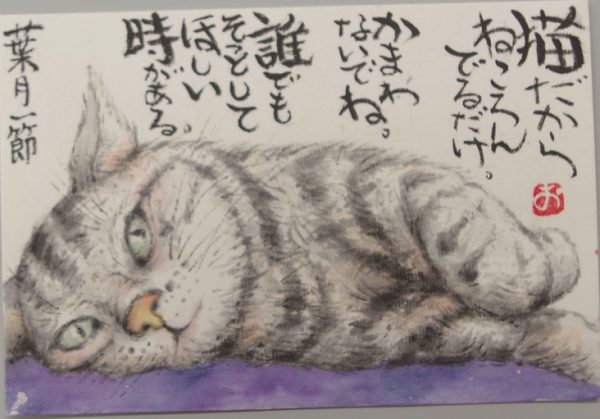 猫だから
ねっころん
でるだけ。
かまわ
ないでね。
誰でも
そっとして
ほしい
時がある。
葉月一節
お